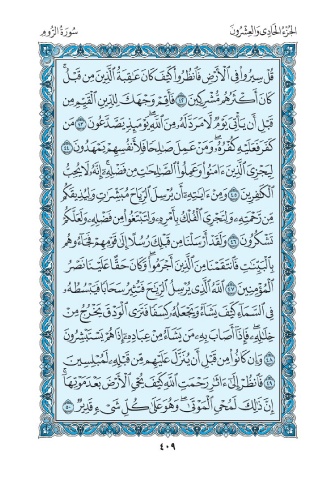 الجُزْءُ الحَادِي وَالعِشْرُونَ سُورَةُ الرُّومِ
قُلْ سِيرُوا۟ فِى ٱلْأَرْضِ فَٱنظُرُوا۟ كَيْفَ كَانَ عَـٰقِبَةُ ٱلَّذِينَ مِن قَبْلُ ۚ
كَانَ أَكْثَرُهُم مُّشْرِكِينَ ٤٢ فَأَقِمْ وَجْهَكَ لِلدِّينِ ٱلْقَيِّمِ مِن
قَبْلِ أَن يَأْتِىَ يَوْمٌ لَّا مَرَدَّ لَهُۥ مِنَ ٱللَّهِ ۖ يَوْمَئِذٍ يَصَّدَّعُونَ ٤٣ مَن
كَفَرَ فَعَلَيْهِ كُفْرُهُۥ ۖ وَمَنْ عَمِلَ صَـٰلِحًا فَلِأَنفُسِهِمْ يَمْهَدُونَ ٤٤
لِيَجْزِىَ ٱلَّذِينَ ءَامَنُوا۟ وَعَمِلُوا۟ ٱلصَّـٰلِحَـٰتِ مِن فَضْلِهِۦٓ ۚ إِنَّهُۥ لَا يُحِبُّ
ٱلْكَـٰفِرِينَ ٤٥ وَمِنْ ءَايَـٰتِهِۦٓ أَن يُرْسِلَ ٱلرِّيَاحَ مُبَشِّرَٰتٍ وَلِيُذِيقَكُم
مِّن رَّحْمَتِهِۦ وَلِتَجْرِىَ ٱلْفُلْكُ بِأَمْرِهِۦ وَلِتَبْتَغُوا۟ مِن فَضْلِهِۦ وَلَعَلَّكُمْ
تَشْكُرُونَ ٤٦ وَلَقَدْ أَرْسَلْنَا مِن قَبْلِكَ رُسُلًا إِلَىٰ قَوْمِهِمْ فَجَآءُوهُم
بِٱلْبَيِّنَـٰتِ فَٱنتَقَمْنَا مِنَ ٱلَّذِينَ أَجْرَمُوا۟ ۖ وَكَانَ حَقًّا عَلَيْنَا نَصْرُ
ٱلْمُؤْمِنِينَ ٤٧ ٱللَّهُ ٱلَّذِى يُرْسِلُ ٱلرِّيَـٰحَ فَتُثِيرُ سَحَابًا فَيَبْسُطُهُۥ
فِى ٱلسَّمَآءِ كَيْفَ يَشَآءُ وَيَجْعَلُهُۥ كِسَفًا فَتَرَى ٱلْوَدْقَ يَخْرُجُ مِنْ
خِلَـٰلِهِۦ ۖ فَإِذَآ أَصَابَ بِهِۦ مَن يَشَآءُ مِنْ عِبَادِهِۦٓ إِذَا هُمْ يَسْتَبْشِرُونَ
٤٨ وَإِن كَانُوا۟ مِن قَبْلِ أَن يُنَزَّلَ عَلَيْهِم مِّن قَبْلِهِۦ لَمُبْلِسِينَ
٤٩ فَٱنظُرْ إِلَىٰٓ ءَاثَـٰرِ رَحْمَتِ ٱللَّهِ كَيْفَ يُحْىِ ٱلْأَرْضَ بَعْدَ مَوْتِهَآ ۚ
إِنَّ ذَٰلِكَ لَمُحْىِ ٱلْمَوْتَىٰ ۖ وَهُوَ عَلَىٰ كُلِّ شَىْءٍ قَدِيرٌ ٥٠
٤٠٩